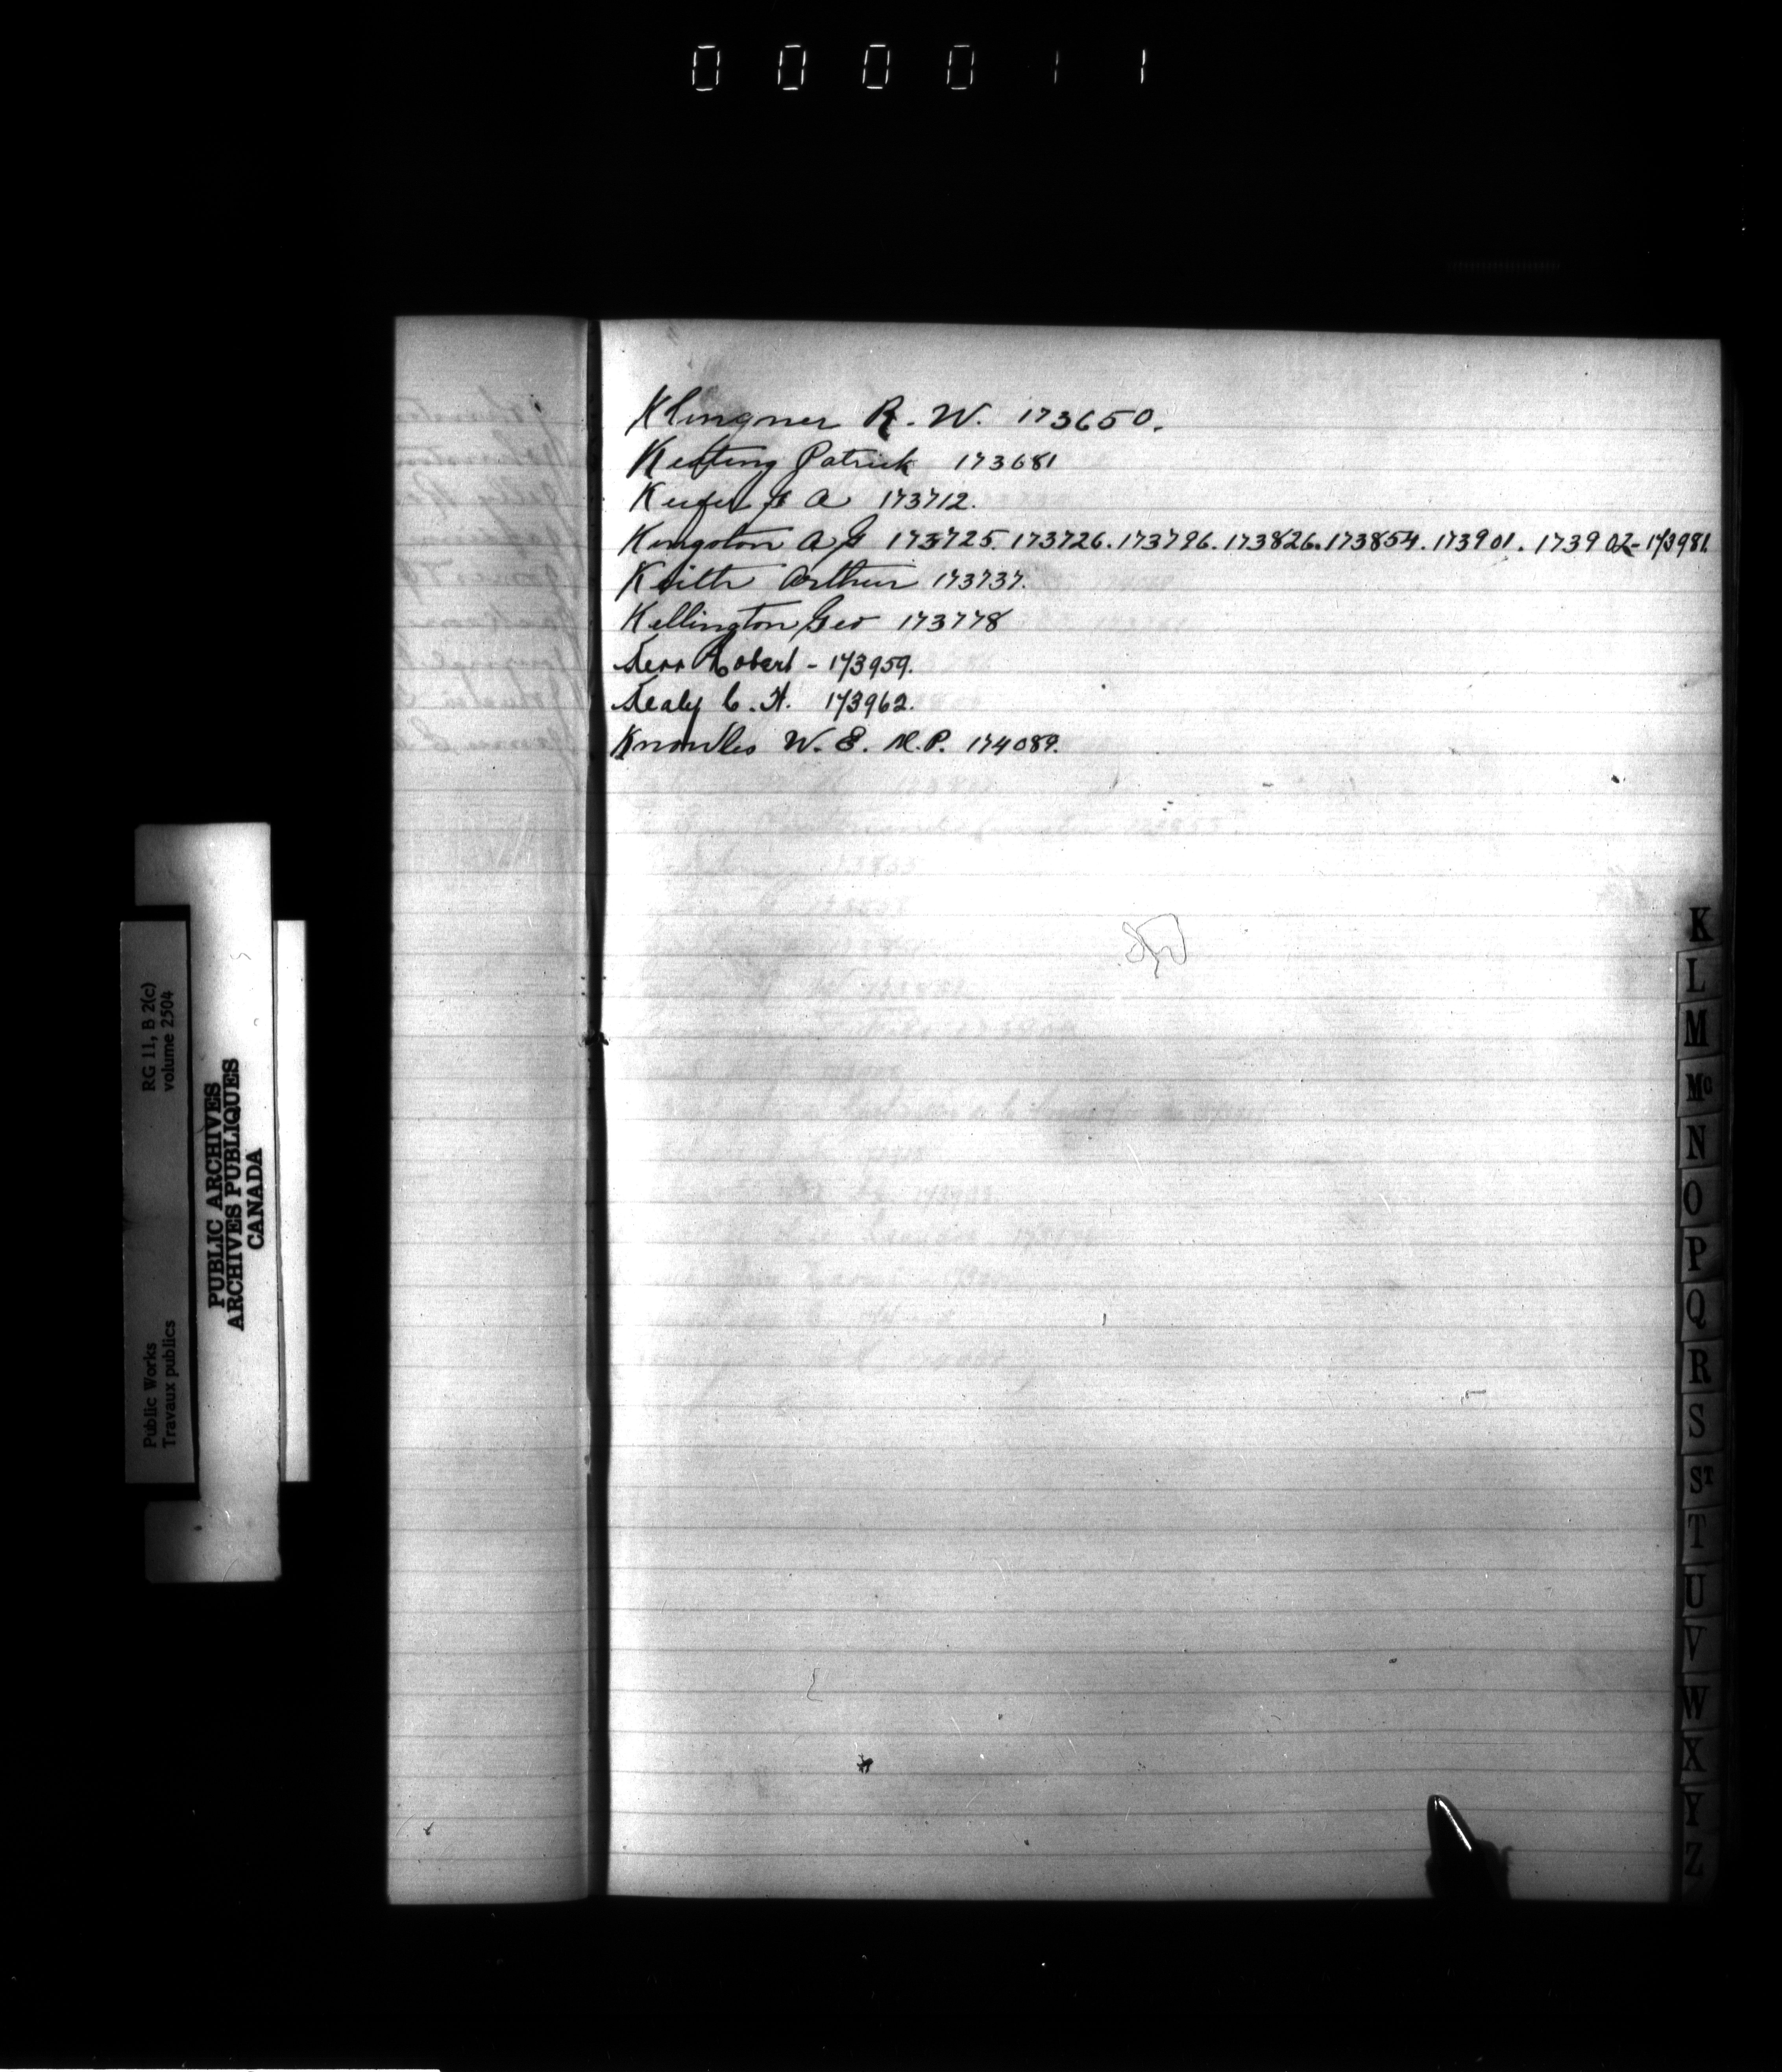 000011
Klingner R. W. 173650.
Keating Patrick 173681
Keefer J A 173712.
Kingston A G 173725. 173726. 173796. 173826. 173854. 173901. 173902 - 173981.
Keith Arthur 173737.
Kellington Geo 173778
Kerr Robert - 173959.
Kealy C. H. 173962.
Knowles W. E. M.P. 174089.
K
L
M
Mc
N
O
P
Q
R
S
ST
T
U
V
W
X
Y
Z
RG 11, B 2(c)
volume 2504
Public Works
Travaux publics
PUBLIC ARCHIVES
ARCHIVES PUBLIQUES
CANADA